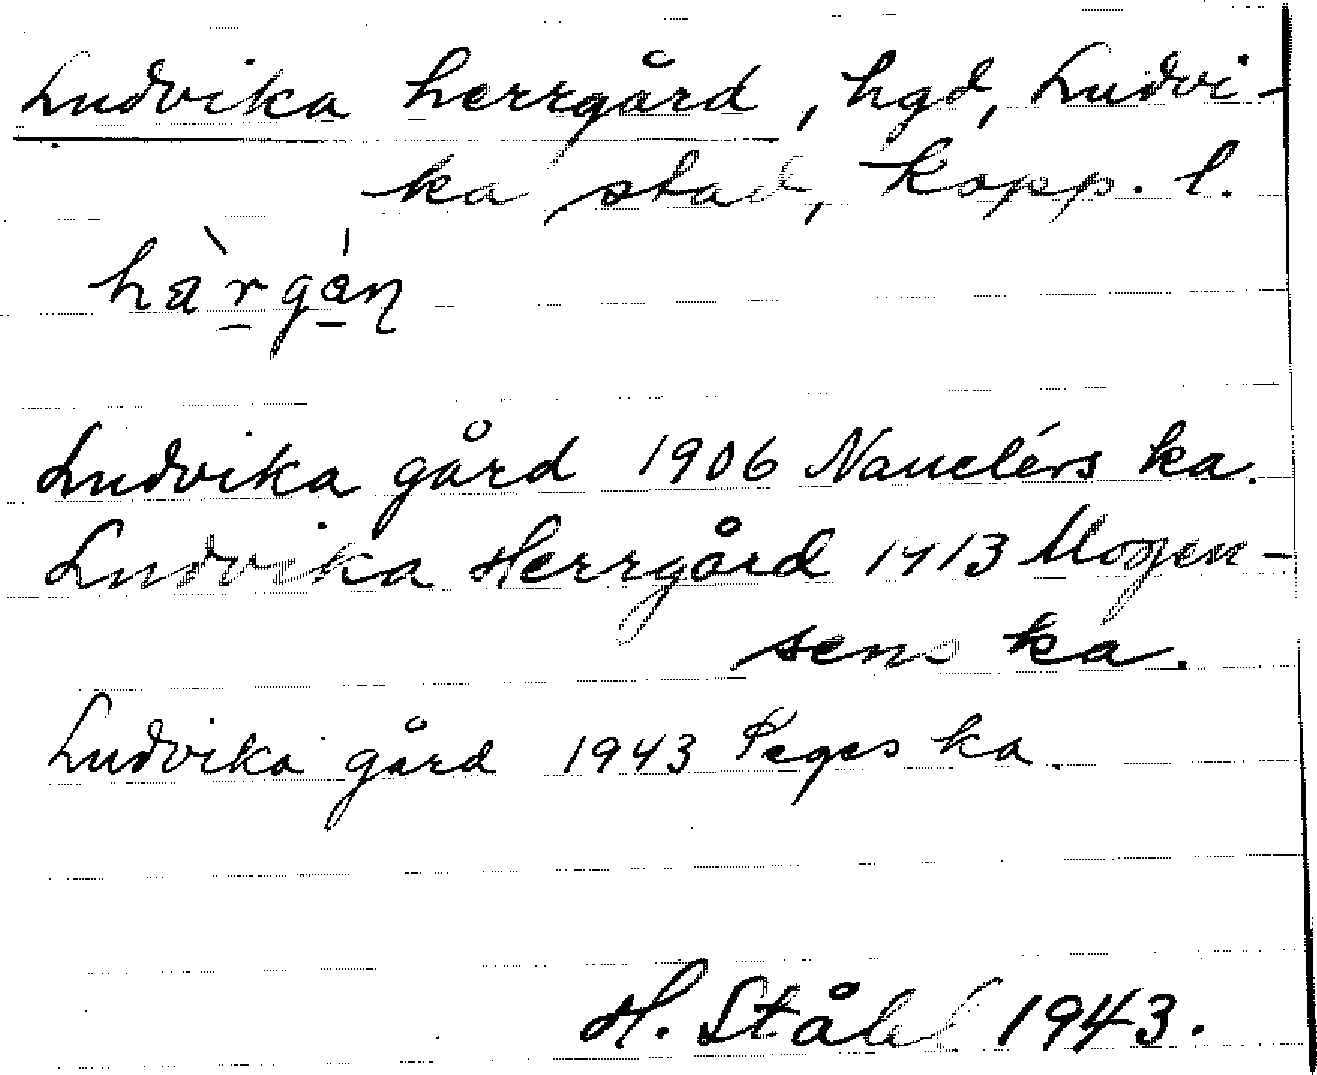 Ludvika herrgård, hgd, Ludvi-
ka stad, Kopp. l.
Ludvika gård 1906 Nauclérs ka.
Ludvika Herrgård 1913 Mogen-
sens ka.
Ludvika gård 1943 Peges ka.
H. Ståhl 1943.